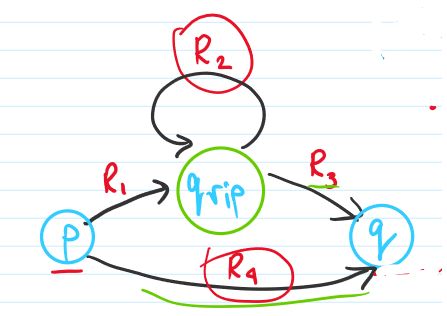 R2
R1
qrip
R3
p
q
R4